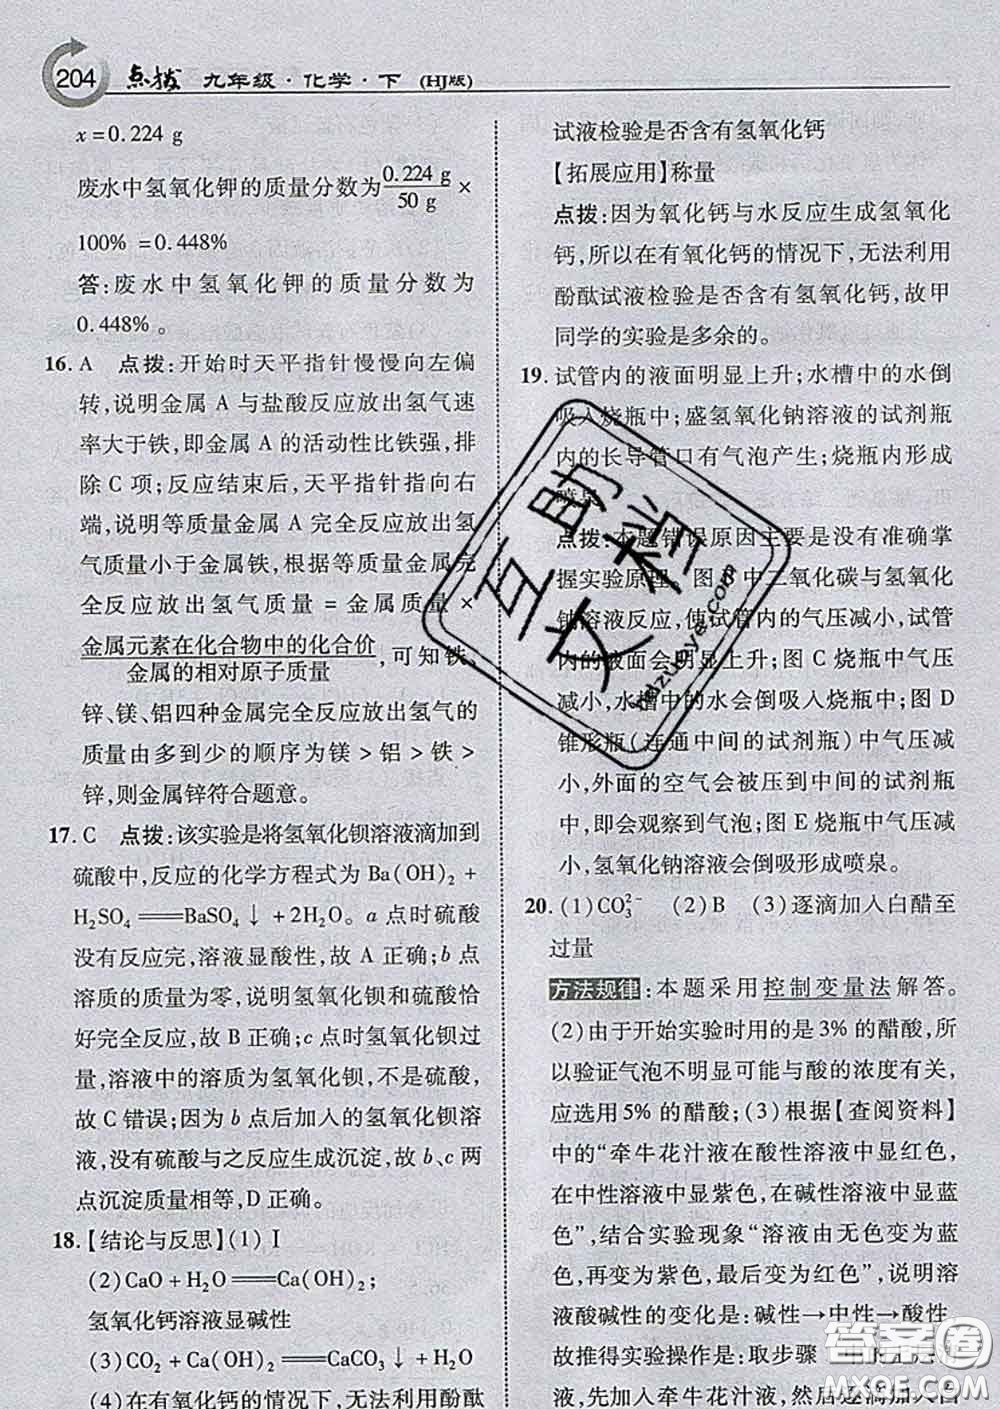 204 点拨 九年级·化学·下 (HJ版)
x=0.224 g
废水中氢氧化钾的质量分数为 0.224 g / 50 g ×
100% =0.448%
答:废水中氢氧化钾的质量分数为
0.448%。
16. A 点拨:开始时天平指针慢慢向左偏
转,说明金属 A 与盐酸反应放出氢气速
率大于铁,即金属 A 的活动性比铁强,排
除 C 项;反应结束后,天平指针指向右
端,说明等质量金属 A 完全反应放出氢
气质量小于金属铁,根据等质量金属完
全反应放出氢气质量=金属质量×
金属元素在化合物中的化合价
金属的相对原子质量
,可知铁、
锌、镁、铝四种金属完全反应放出氢气的
质量由多到少的顺序为镁>铝>铁>
锌,则金属锌符合题意。
17. C 点拨:该实验是将氢氧化钡溶液滴加到
硫酸中,反应的化学方程式为 Ba(OH)₂ +
H₂SO₄══BaSO₄↓+2H₂O。a 点时硫酸
没有反应完,溶液显酸性,故 A 正确;b 点
溶质的质量为零,说明氢氧化钡和硫酸恰
好完全反应,故 B 正确;c 点时氢氧化钡过
量,溶液中的溶质为氢氧化钡,不是硫酸,
故 C 错误;因为 b 点后加入的氢氧化钡溶
液,没有硫酸与之反应生成沉淀,故 b、c 两
点沉淀质量相等,D 正确。
18.【结论与反思】(1) I
(2) CaO + H₂O══Ca(OH)₂;
氢氧化钙溶液显碱性
(3) CO₂ + Ca(OH)₂══CaCO₃↓+ H₂O
(4)在有氧化钙的情况下,无法利用酚酞
试液检验是否含有氢氧化钙
【拓展应用】称量
点拨:因为氧化钙与水反应生成氢氧化
钙,所以在有氧化钙的情况下,无法利用
酚酞试液检验是否含有氢氧化钙,故甲
同学的实验是多余的。
19. 试管内的液面明显上升;水槽中的水倒
吸入烧瓶中;盛氢氧化钠溶液的试剂瓶
内的长导管口有气泡产生;烧瓶内形成
喷泉
点拨:本题错误原因主要是没有准确掌
握实验原理。图 B 中二氧化碳与氢氧化
钠溶液反应,使试管内的气压减小,试管
内的液面会明显上升;图 C 烧瓶中气压
减小,水槽中的水会倒吸入烧瓶中;图 D
锥形瓶(连通中间的试剂瓶)中气压减
小,外面的空气会被压到中间的试剂瓶
中,即会观察到气泡;图 E 烧瓶中气压减
小,氢氧化钠溶液会倒吸形成喷泉。
20. (1)CO₃²⁻ (2)B (3)逐滴加入白醋至
过量
方法规律:本题采用控制变量法解答。
(2)由于开始实验时用的是 3% 的醋酸,所
以验证气泡不明显可能与酸的浓度有关,
应选用 5% 的醋酸;(3)根据【查阅资料】
中的“牵牛花汁液在酸性溶液中显红色,
在中性溶液中显紫色,在碱性溶液中显蓝
色”,结合实验现象“溶液由无色变为蓝
色,再变为紫色,最后变为红色”,说明溶
液酸碱性的变化是:碱性→中性→酸性,
故推得实验操作是:取步骤
液,先加入牵牛花汁液,然后逐滴加入白
互助文档
hdzuoye.com
答案圈
MXQE.COM